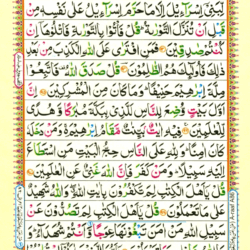 لِّبَنِيْٓ اِسْرَآءِيْلَ اِلَّا مَا حَرَّمَ اِسْرَآءِيْلُ عَلٰى نَفْسِهٖ مِنْ
قَبْلِ اَنْ تُنَزَّلَ التَّوْرٰىةُ ؕ قُلْ فَاْتُوْا بِالتَّوْرٰىةِ فَاتْلُوْهَآ اِنْ
كُنْتُمْ صٰدِقِيْنَ فَمَنِ افْتَرٰى عَلَى اللّٰهِ الْكَذِبَ مِنْۢ بَعْدِ
ذٰلِكَ فَاُولٰٓئِكَ هُمُ الظّٰلِمُوْنَ قُلْ صَدَقَ اللّٰهُ فَاتَّبِعُوْا
مِلَّةَ اِبْرٰهِيْمَ حَنِيْفًا وَمَا كَانَ مِنَ الْمُشْرِكِيْنَ اِنَّ
اَوَّلَ بَيْتٍ وُّضِعَ لِلنَّاسِ لَلَّذِيْ بِبَكَّةَ مُبٰرَكًا وَّهُدًى
لِّلْعٰلَمِيْنَ فِيْهِ اٰيٰتٌۢ بَيِّنٰتٌ مَّقَامُ اِبْرٰهِيْمَ وَمَنْ دَخَلَهٗ
كَانَ اٰمِنًا وَلِلّٰهِ عَلَى النَّاسِ حِجُّ الْبَيْتِ مَنِ اسْتَطَاعَ
اِلَيْهِ سَبِيْلًا وَمَنْ كَفَرَ فَاِنَّ اللّٰهَ غَنِيٌّ عَنِ الْعٰلَمِيْنَ
قُلْ يٰٓاَهْلَ الْكِتٰبِ لِمَ تَكْفُرُوْنَ بِاٰيٰتِ اللّٰهِ وَاللّٰهُ شَهِيْدٌ
عَلٰى مَا تَعْمَلُوْنَ قُلْ يٰٓاَهْلَ الْكِتٰبِ لِمَ تَصُدُّوْنَ عَنْ
سَبِيْلِ اللّٰهِ مَنْ اٰمَنَ تَبْغُوْنَهَا عِوَجًا وَّاَنْتُمْ شُهَدَآءُ